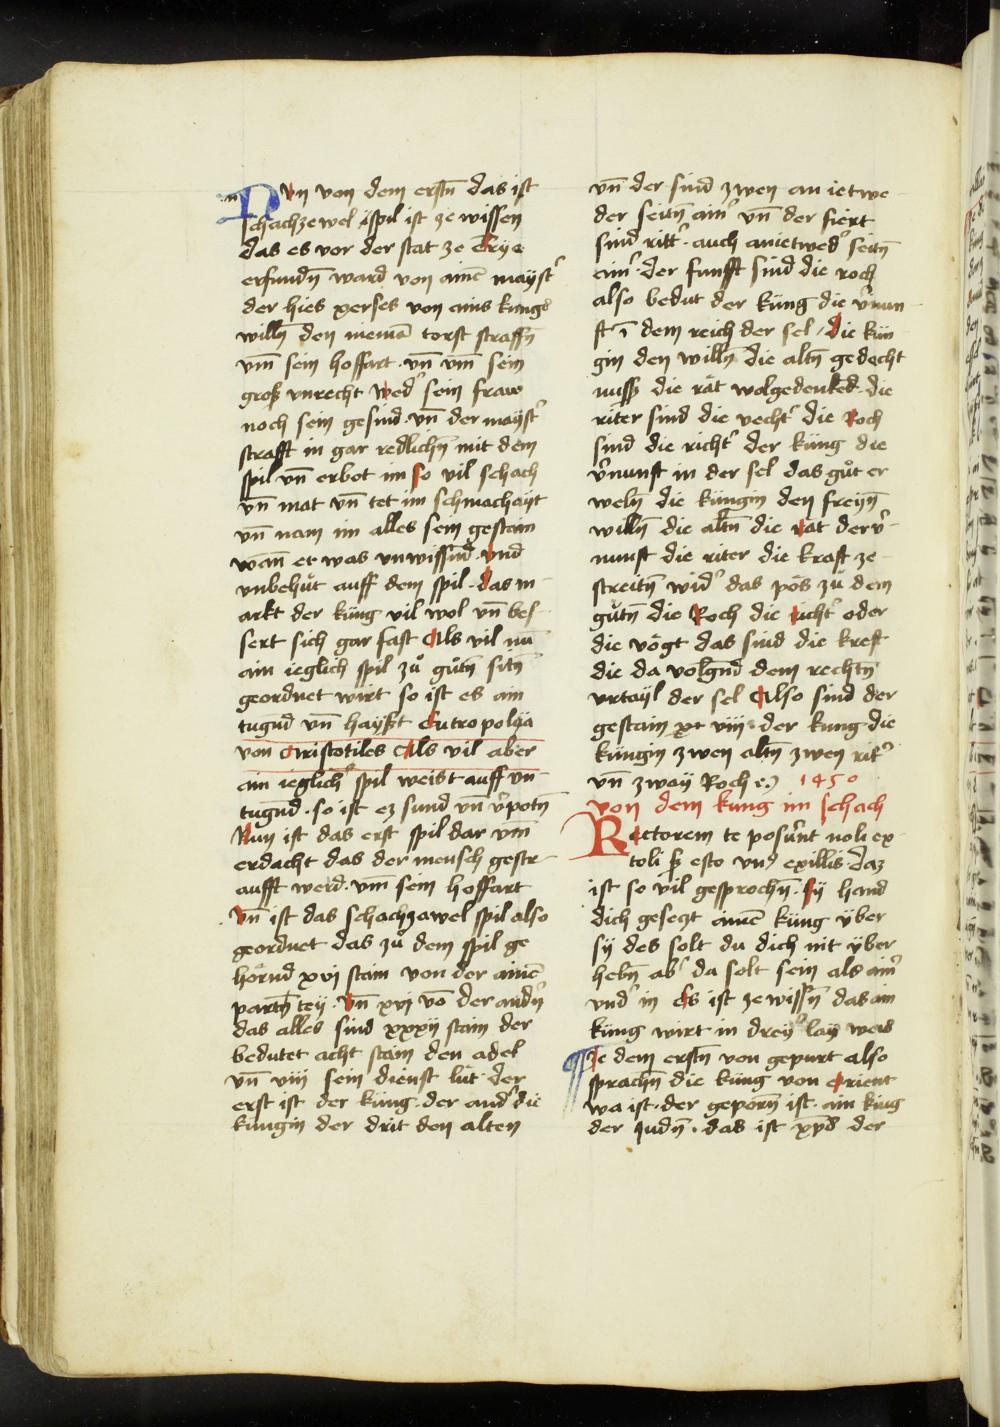 Nun von dem erstn̄ das ist
schachzewel spil ist ze wissen
das es vor der stat ze Trye
erfundn̄ ward von aīnē mayst̓
der hies xerses von ains kungs
willn̄ den niemā torst straffn̄
vm̄ sein hoffart · vn̄ vm̄ sein
groß vnrecht wed̓ sein fraw
noch sein gesind · vn̄ der mayst̓
strafft in gar redlichn̄ mit dem
spil vn̄ erbot im so vil schach
vn̄ mat vn̄ tet im schmachayt
vn̄ nam im alles sein gestain
wan̄ et was vnwissnd̄ · vnd
vnbehůt auff dem spil · das m
arkt der küng vil wol vn̄ bes-
sert sich gar fast Als vil nū
ain ieglich spil zů gůtn̄ sitn̄
geordnet wirt so ist es ain
tugnd̄ vn̄ hayßt Eutropolia
von Aristotiles Als vil aber
ain ieglich̓ spil weist auff vn-
tugnd̄ · so ist ez sund vn̄ v̓potn̄
Nun ist das erst spil dar vm̄
erdacht das der mensch gestr-
aufft werd · vm̄ sein hoffart
Vn̄ ist das schachzawel spil also
geordnet das zů dem spil ge
hörnd xvi stain von der ainē
partn̄ teÿ · Vn̄ xvi vō der andn̓
das alles sind xxxij stain der
bedutet acht stain den adel
vn̄ viij sein dienst lüt · der
erst ist der küng · der and̓ die
kungin der drit den alten
vn̄ der sind zwen an ietwe-
der seitn̄ ain̓ vn̄ der fiert
sind ritt̓ · auch anietwed̓ seitn̄
ein̓ · der funfft sind die roch
also bedut der küng die v̓nun-
ft ī dem reich der sel / die kün
gin den willn̄ die altn̄ gedecht
nuss die rät wolgedenked · die
riter sind die vecht̓ die Roch
sind die richt̓ der küng die
v̓nunft in der sel das gůt er
weln̄ die küngin den freyn̄
willn̄ die altn̄ die rät der v̓-
nunft die riter die kraft ze-
streitn̄ wid̓ das pös zů dem
gůtn̄ die Roch die richt̓ oder
die vögt das sind die kreft
die da volgnd̄ dem rechtn̄
vrtayl der sel Also sind der
gestain xvviij · der kung · die
küngin zwen altn̄ zwen rit̓
vn̄ zwaÿ Roch 1450
von dem kung im schach
Rectorem te posuer̄nt noli ex-
toli sꝫ esto vn9 exillis · daz
ist so vil gesprochn̄ · sÿ hand
dich gesezt ainē küng ÿber
sÿ des solt du dich nit ÿber
hebn̄ ab̓ da solt sein als ain̓
vnd̓ in Es ist ze wissn̄ das ain
küng wirt in dreÿ̓ laÿ weis
¶ Ze dem erstn̄ von gepurt also
sprachn̄ die küng von Orient
wa ist · der geporn̄ ist · ain küng
der Judn̄ · das ist xp̄s der